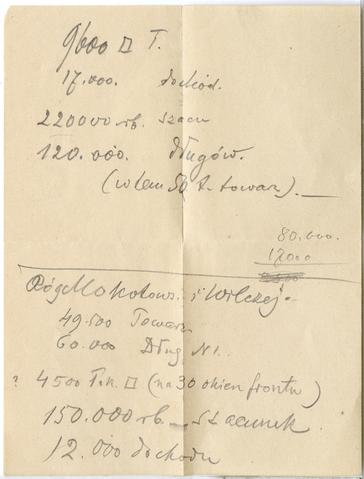 9600 □ T.
17.000. dochód.
220000 rb. szacu
120.000. długów.
(w tem 50 t. towarz).
80.000.
17000
Róg Mokotows. i Wilczej.
49.500 Towarz
60.000 Dług N1.
? 4500 łok □ (na 30 okien frontu)
150.000 rb. Szacunek
12.000 dochodu